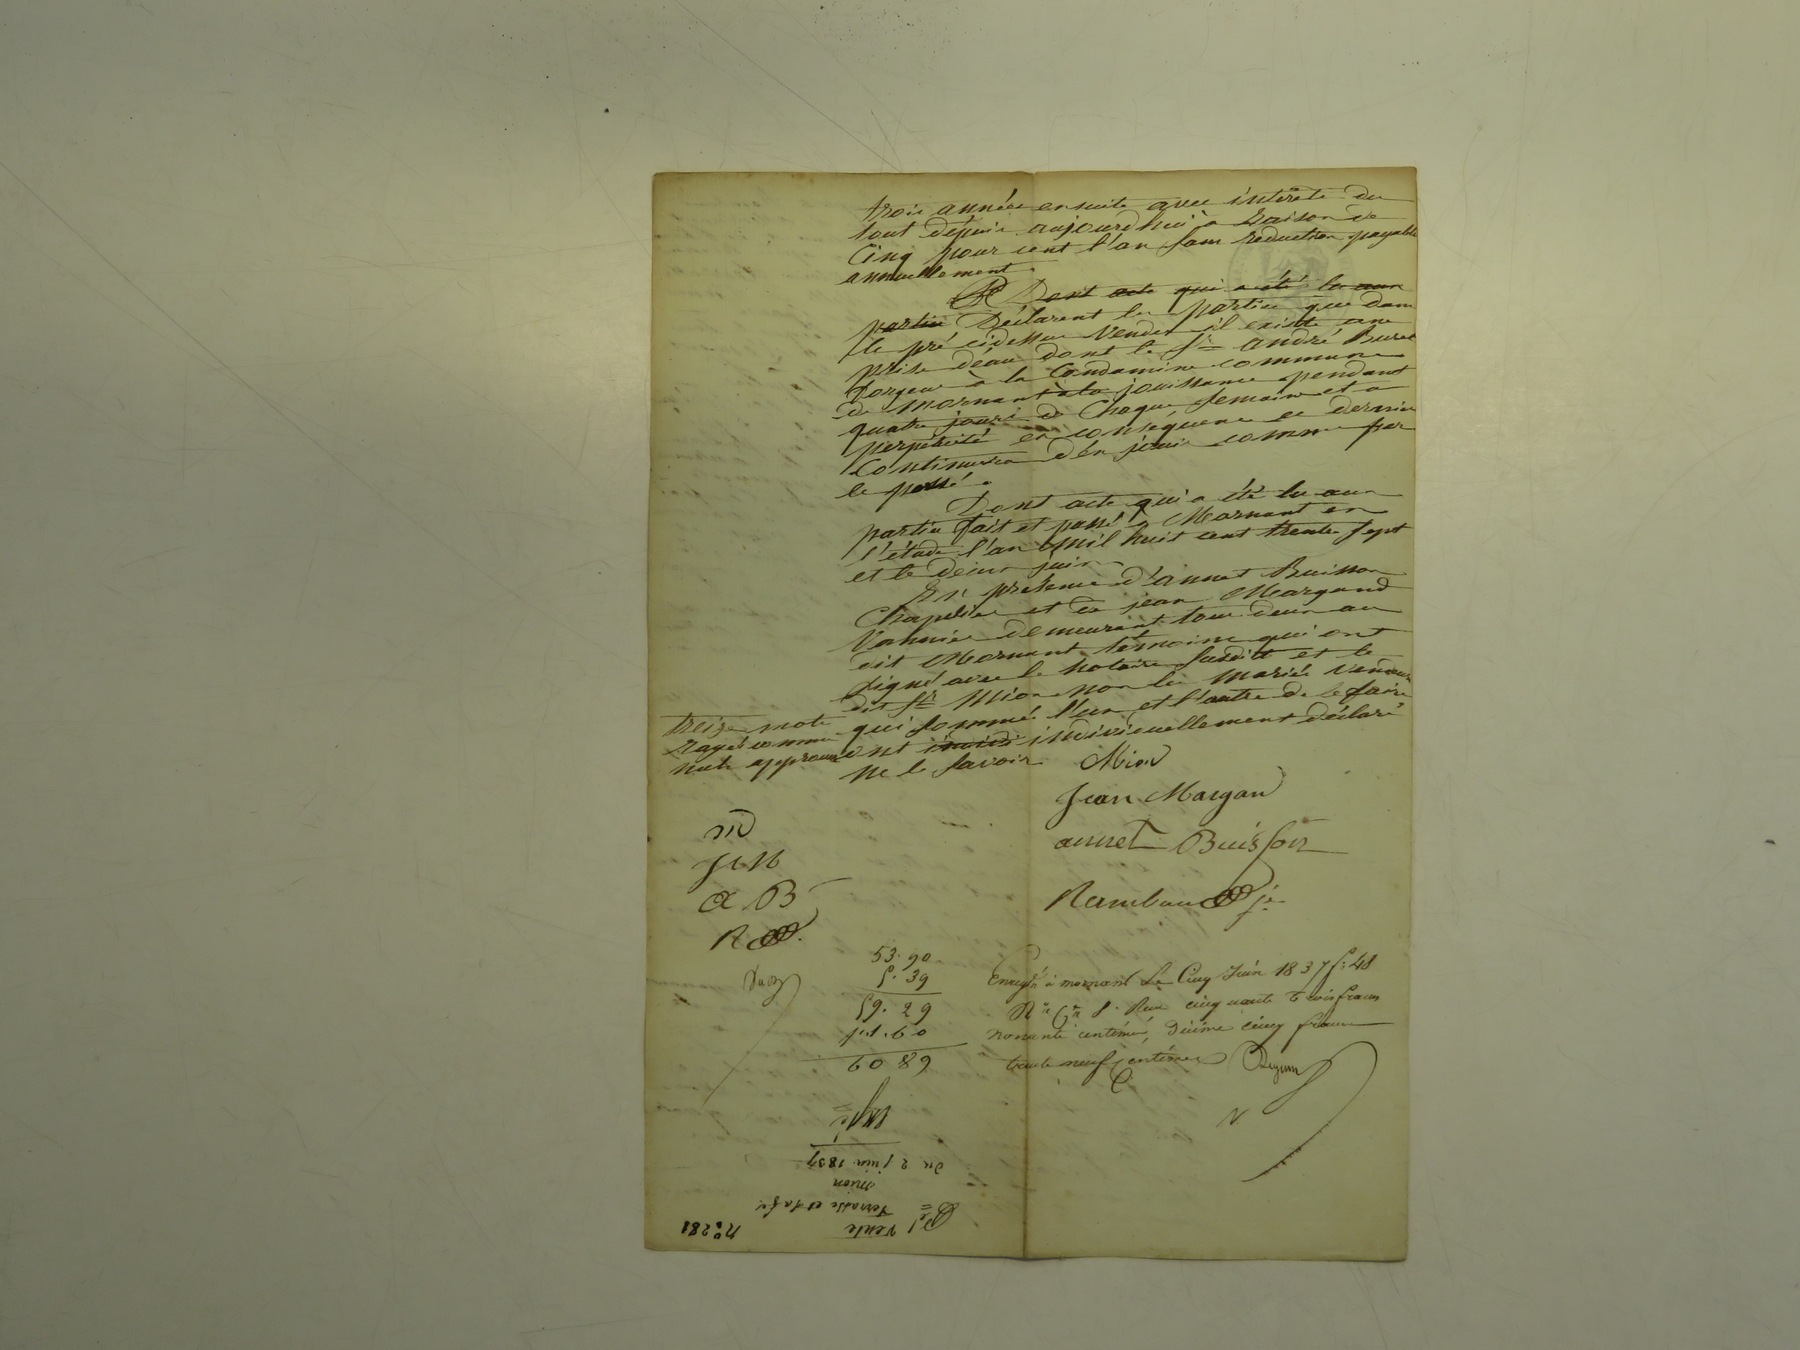 trois années ensuite avec intérêts du
tout dépuis aujourdhui à Raison de
Cinq pour cent l'an sans réduction payable
annuellement.
Dont acte qui a été lu aux
parties Déclarent les parties que dans
le pré cidessus vendu il existe une
prise déau dont le Sr André Buret
forgeur à la Condamine commune
de Mornant a la jouissance pendant
quatre jours de Chaque semaine et a
perpétuité en conséquence ce dernier
Continuera d'en jouir comme par
le passé.
Dont acte qui a été lu aux
parties fait et passé à Mornant en
l'étude l'an Mil huit cent trente sept
et le deux juin
En présence d'annet Buisson
Chapelier et de jean Margand
Vannier demeurant tous deux au
dit Mornant témoins qui ont
signé avec le notaire susdit et le
dit Sr Mion non les mariés vendeurs
qui sommés l'un et l'autre de le faire
ont individuellement déclaré
ne le savoir.
treize mots
rayés comme
nuls approuvés
Mion
Jean Margan
annet Buisson
Rambaud jne
m
J M
a B
R
53. 90
5. 39
59. 29
1. 60
60 89
Enregt à mornant Le Cinq Juin 1837 f: 48
Ro Cn 8. Reçu cinquante trois francs
nonante centimes, décime cinq francs
trente neuf centimes
Vente
terrasse et
mion
du 2 juin 1837
no 281